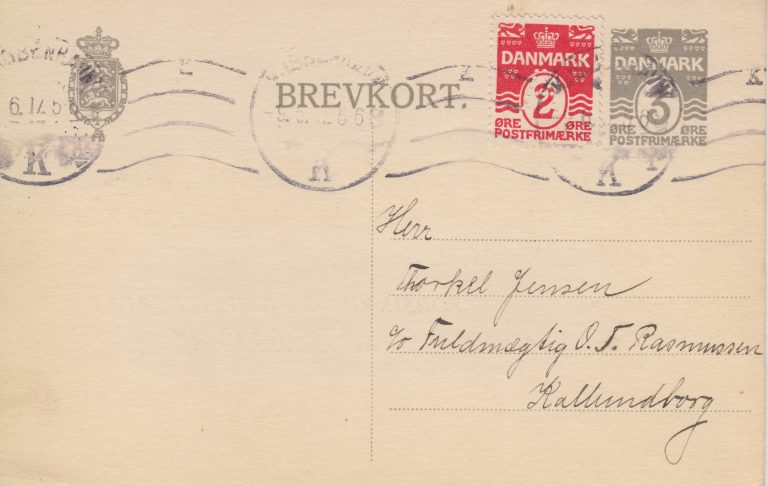 6. 17. 5
K
BREVKORT.
K
DANMARK
2
ØRE ØRE
POSTFRIMÆRKE
DANMARK
3
ØRE ØRE
POSTFRIMÆRKE
K
K
Herr
Thorkel Jensen
c/o Fuldmægtig O. T. Rasmussen
Kallundborg